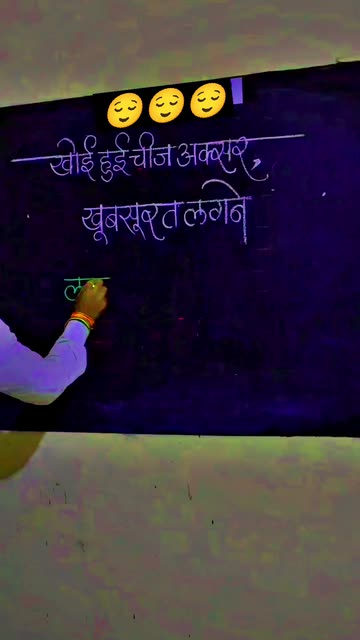 खोई हुई चीज अक्सर,
खूबसूरत लगने
ल